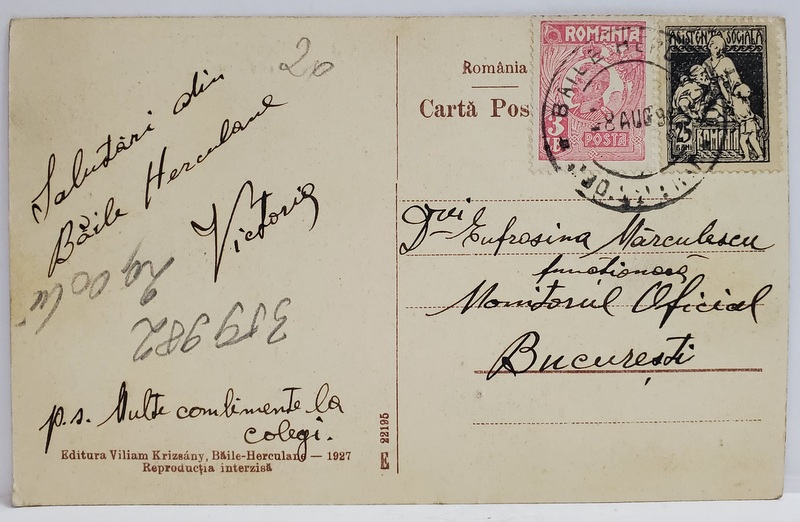 20
Salutări din
Băile Herculane
Victoria
359982
p.s. Multe complimente la
colegi.
Editura Viliam Krizsány, Băile-Herculane — 1927
Reproducția interzisă
E 22195
România
Cartă Pos
ROMÂNIA
3
LEI
POSTA
ASISTENȚA SOCIALĂ
25
BANI
TIMBRU
BAILE HER
8 AUG 9
Dnei Eufrosina Mărculescu
funcționară
Monitorul Oficial
București